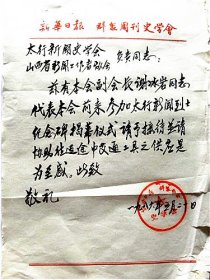 新华日报 群众周刊史学会
太行新闻史学会
山西省新闻工作者协会 负责同志：
兹有本会副会长谢冰岩同志，
代表本会前来参加太行新闻烈士
纪念碑揭幕仪式，请予接待并请
协助在返途中交通工具之供应是
为至感。此致
敬礼
一九八六年五月二十日